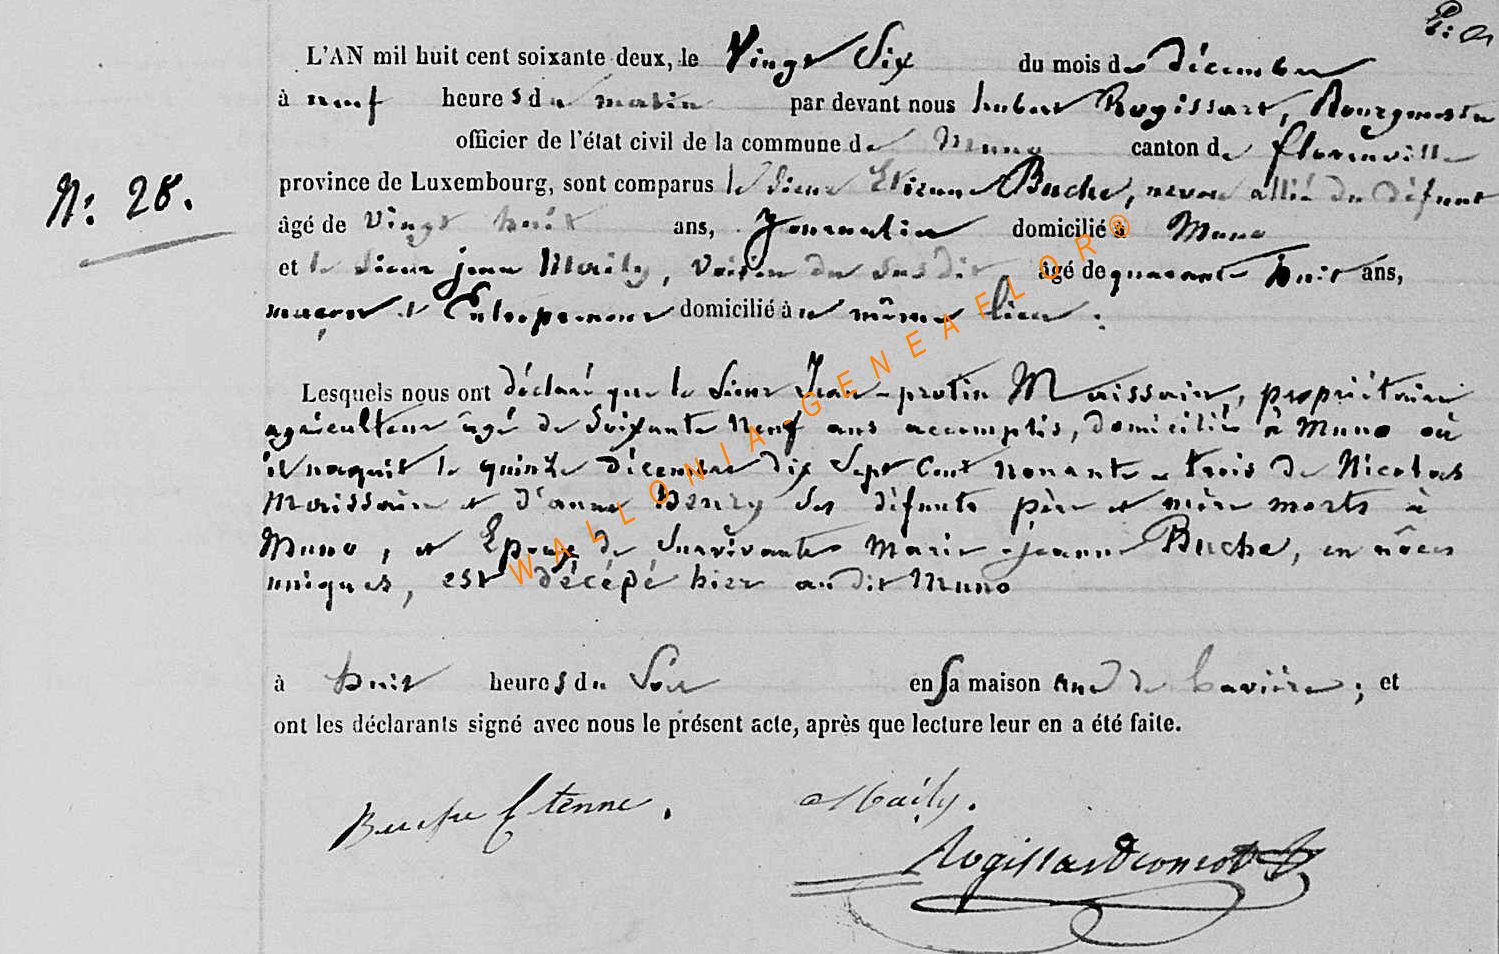 L'AN mil huit cent soixante deux, le Vingt Six du mois de décembre
à neuf heures du matin par devant nous hubert Rogissart, Bourgmestre
officier de l'état civil de la commune de Muno canton de florenville
N: 28.
province de Luxembourg, sont comparus le Sieur Etienne Buche, neveu allié du défunt
âgé de Vingt huit ans, Journalier domicilié à Muno
et le Sieur jean Maily, Voisin du Susdit âgé de quarante huit ans,
maçon et Entrepreneur domicilié à u même lieu :
Lesquels nous ont déclaré que le Sieur Jean-protin Maissoin, propriétaire
agriculteur âgé de Soixante Neuf ans accomplis, domicilié à Muno où
il naquit le quinze décembre dix Sept Cent nonante-trois de Nicolas
Maissoin et d'anne henry Ses défunts père et mère morts à
Muno, et Epoux de Survivante Marie-jeanne Buche, en nôces
uniques, est décépé hier au dit Muno
à huit heures du Soir en Sa maison rue de bavière ; et
ont les déclarants signé avec nous le présent acte, après que lecture leur en a été faite.
Buche Etienne. Maily.
Rogissart
WALLONIA-GENEAFLOR®